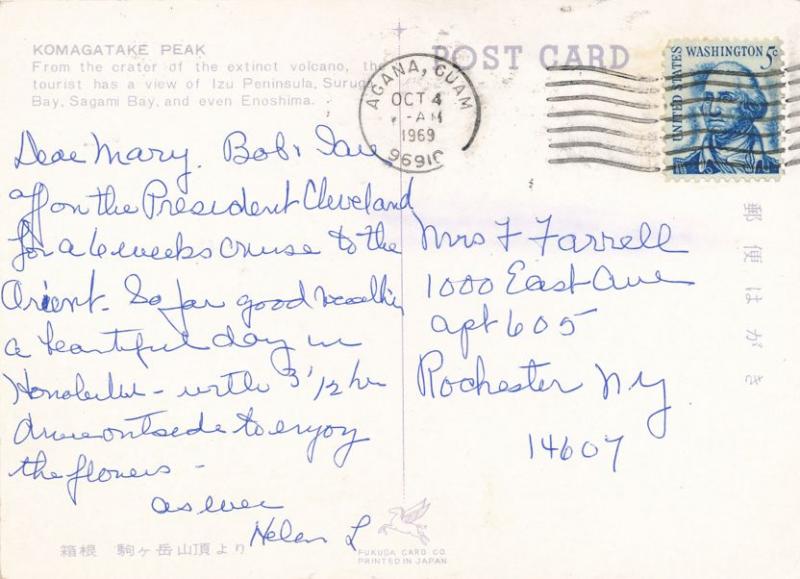 KOMAGATAKE PEAK
From the crater of the extinct volcano, the
tourist has a view of Izu Peninsula, Suruga
Bay, Sagami Bay, and even Enoshima.
POST CARD
AGANA, GUAM
OCT 4
AM
1969
96910
UNITED STATES
WASHINGTON 5c
Dear Mary. Bob &
off on the President Cleveland
for a 6 weeks cruise to the
Orient. So far good weather
a beautiful day in
Honolulu - with 3 1/2 hr
drive outside to enjoy
the flowers -
as ever
Helen L
Mrs F Farrell
1000 East Ave
apt 605
Rochester NY
14607
郵便はがき
箱根 駒ヶ岳山頂より
FUKUDA CARD CO.
PRINTED IN JAPAN